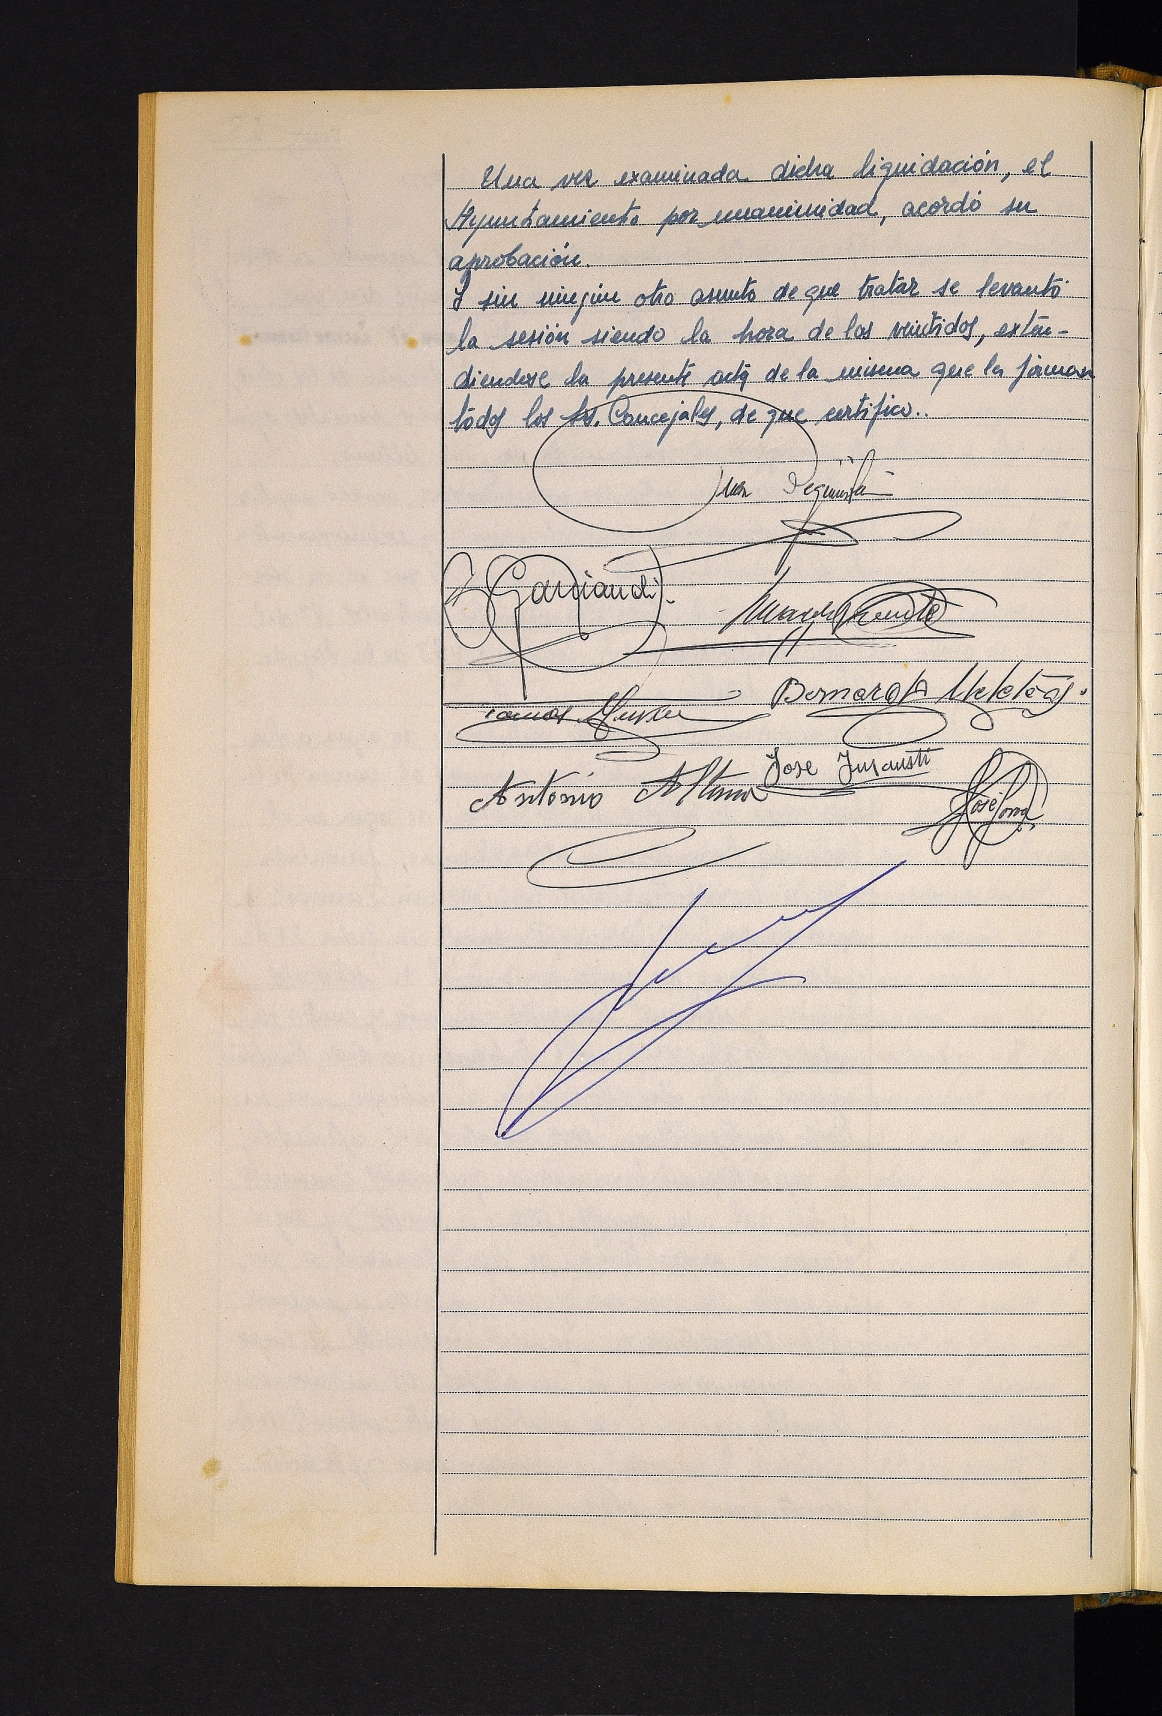 Una vez examinada dicha liquidación, el
Ayuntamiento por unanimidad, acordó su
aprobación.
Y sin ningún otro asunto de que tratar se levantó
la sesión siendo la hora de las veintidos, exten-
diendose la presente acta de la misma que la firman
todos los Srs. Concejales, de que certifico..
Juan
Garciandi
Bernardo
Jose Insausti
Antonio Altuna
José